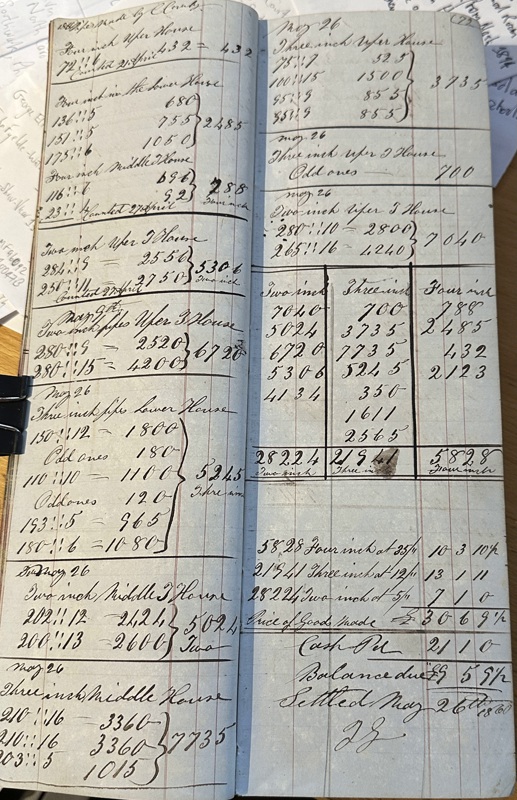 1860 Pipes Made by C
Four inch Uper House
72!!6 432 = 432
Counted 21 April
Four inch in the Lower House
136!!5 680
151!!5 755
175!!6 1050
2485
Four inch Middle T House
116!!6 696
23!!4 92
788
Four inch
Counted 27 April
Two inch Uper T House
284!!9 = 2556
250!!11 2750
5306
Two inch
Counted 27 April
May 9th
Two inch pipes Uper T House
280!!9 2520
280!!15 = 4200
6720
May 26
Three inch pipes Lower House
150!!12 = 1800
Odd ones 180
110!!10 = 1100
Odd ones 120
193!!5 = 965
180!!6 = 1080
5245
Three inch
May 26
Two inch Middle T House
202!!12 = 2424
200!!13 = 2600
5024
Two
May 26
Three inch Middle House
210!!16 - 3360
210!!16 3360
203!!5 1015
7735
May 26
Three inch Uper House
75!!7 525
100!!15 1500
95!!9 855
95!!9 855
3735
May 26
Three inch Uper T House
Odd ones 700
May 26
Two inch Uper T House
280!!10 = 2800
265!!16 - 4240
7040
Two inch Three inch Four inch
7040 700 788
5024 3735 2485
6720 7735 432
5306 5245 2123
4134 350
1611
2565
28224 21941 5828
Two inch Three inch Four inch
5828 Four inch at 35/- 10 3 10½
21941 Three inch at 12/- 13 1 11
28224 Two inch at 5/- 7 1 0
Price of Goods Made £ 30 6 9½
Cash Pd 21 1 0
Balance due £9 5 9½
Settled May 26th 1860